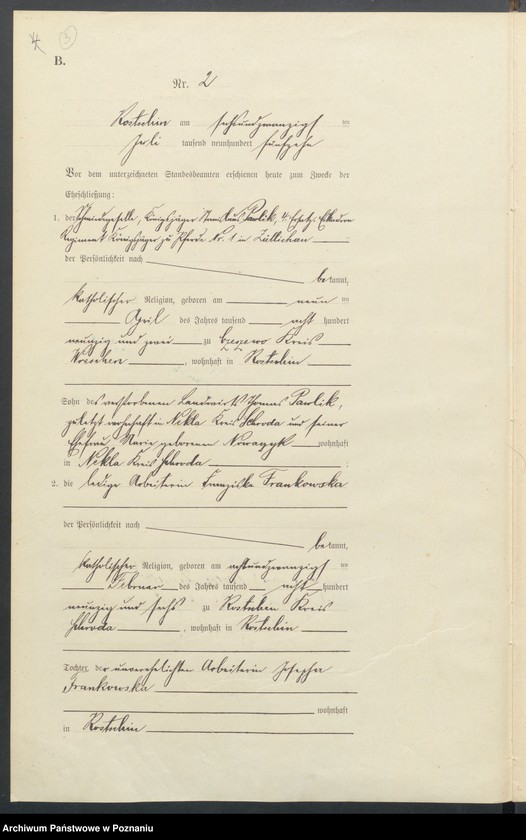 4 3
B.
Nr. 2
Rostschin am sechsundzwanzigsten
Juli tausend neunhundert fünfzehn
Vor dem unterzeichneten Standesbeamten erschienen heute zum Zwecke der
Eheschließung:
1. der Schmiedegeselle, Königsjäger Stanislaus Pawlik, 4. Ersatz Eskadron
Regiment Königsjäger zu Pferde Nr. 1 in Züllichau
der Persönlichkeit nach
bekannt,
katholischer Religion, geboren am neunten
April des Jahres tausend acht hundert
neunzig und zwei zu Kreis
Wreschen, wohnhaft in Rostschin
Sohn des verstorbenen Landwirts Thomas Pawlik,
zuletzt wohnhaft in Nekla Kreis Schroda und seiner
Ehefrau Marie geborenen wohnhaft
in Nekla Kreis Schroda
2. die ledige Arbeiterin Franziska Frankowska
der Persönlichkeit nach
bekannt,
katholischer Religion, geboren am achtundzwanzigsten
Februar des Jahres tausend acht hundert
neunzig und sechs zu Rostschin Kreis
Schroda, wohnhaft in Rostschin
Tochter der unverehelichten Arbeiterin Josepha
Frankowska
wohnhaft
in Rostschin
Archiwum Państwowe w Poznaniu